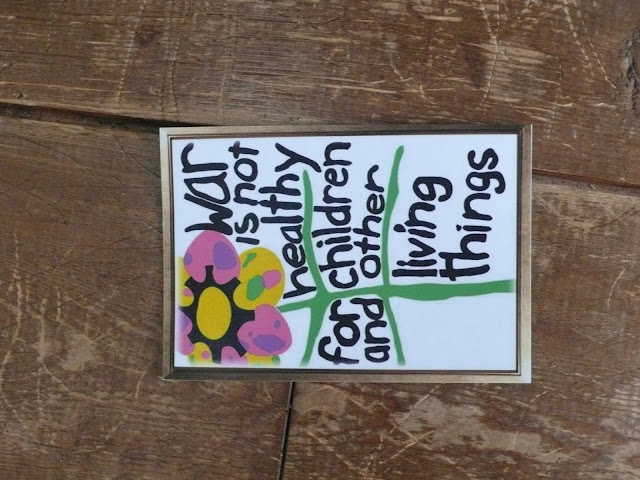 war
is not
healthy
for children
and other
living
things